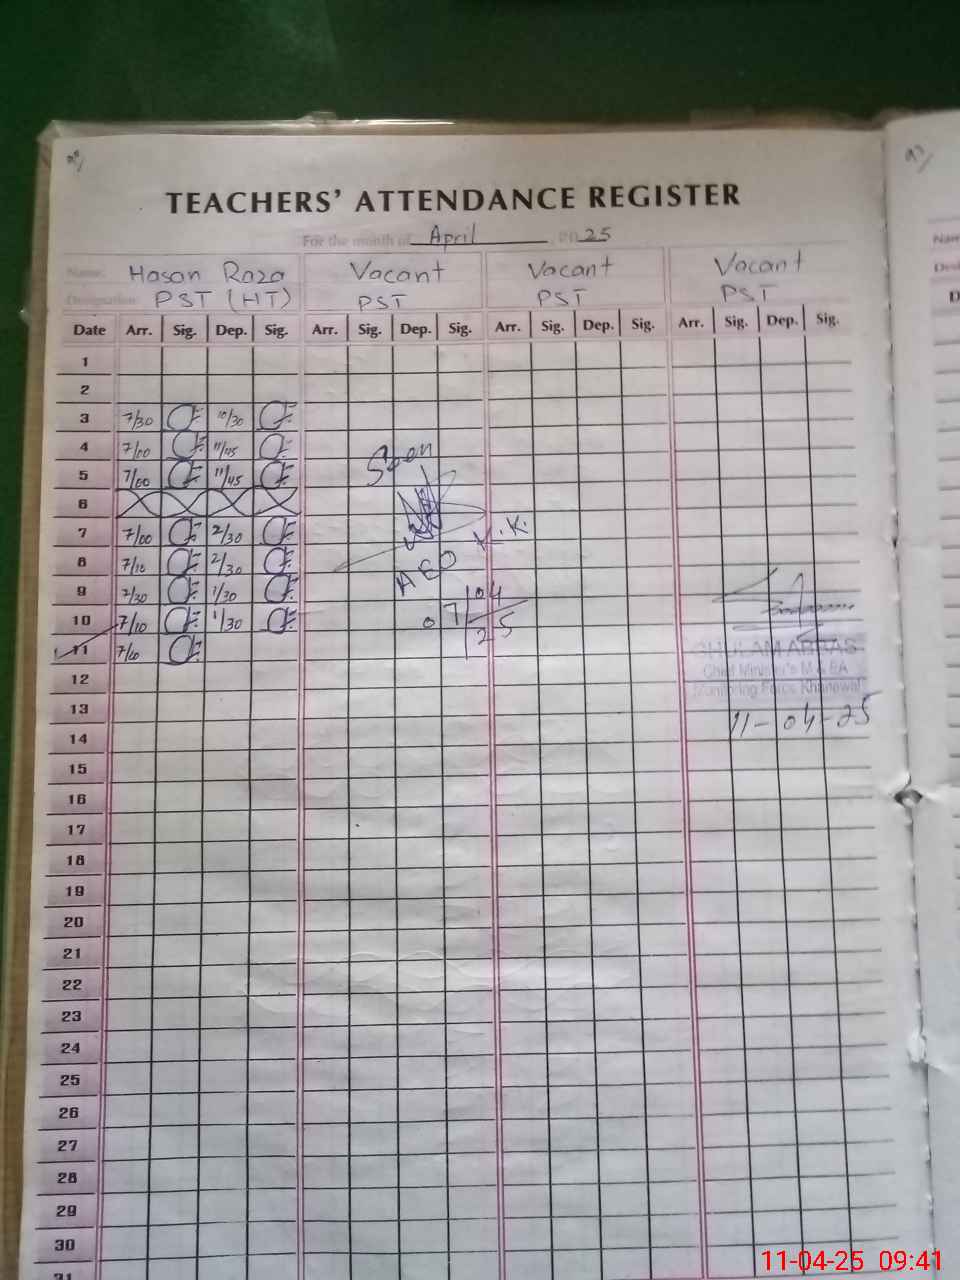 TEACHERS' ATTENDANCE REGISTER
For the month of April 2025
Name: Hasan Raza Vacant Vacant Vacant
Designation: PST (HT) PST PST PST
Date Arr. Sig. Dep. Sig. Arr. Sig. Dep. Sig. Arr. Sig. Dep. Sig. Arr. Sig. Dep. Sig.
1
2
3 7/30 10/30
4 7/00 11/45
5 7/00 11/45
Seen
6
7 7/00 2/30
8 7/10 2/30
AEO K.K.
9 7/30 1/30
10 7/10 1/30
07/04
25
11
GHULAM ABBAS
Chief Minister's M & EA
Monitoring Force Khanewal
12
13
11-04-25
14
15
16
17
18
19
20
21
22
23
24
25
26
27
28
29
30
31
11-04-25 09:41